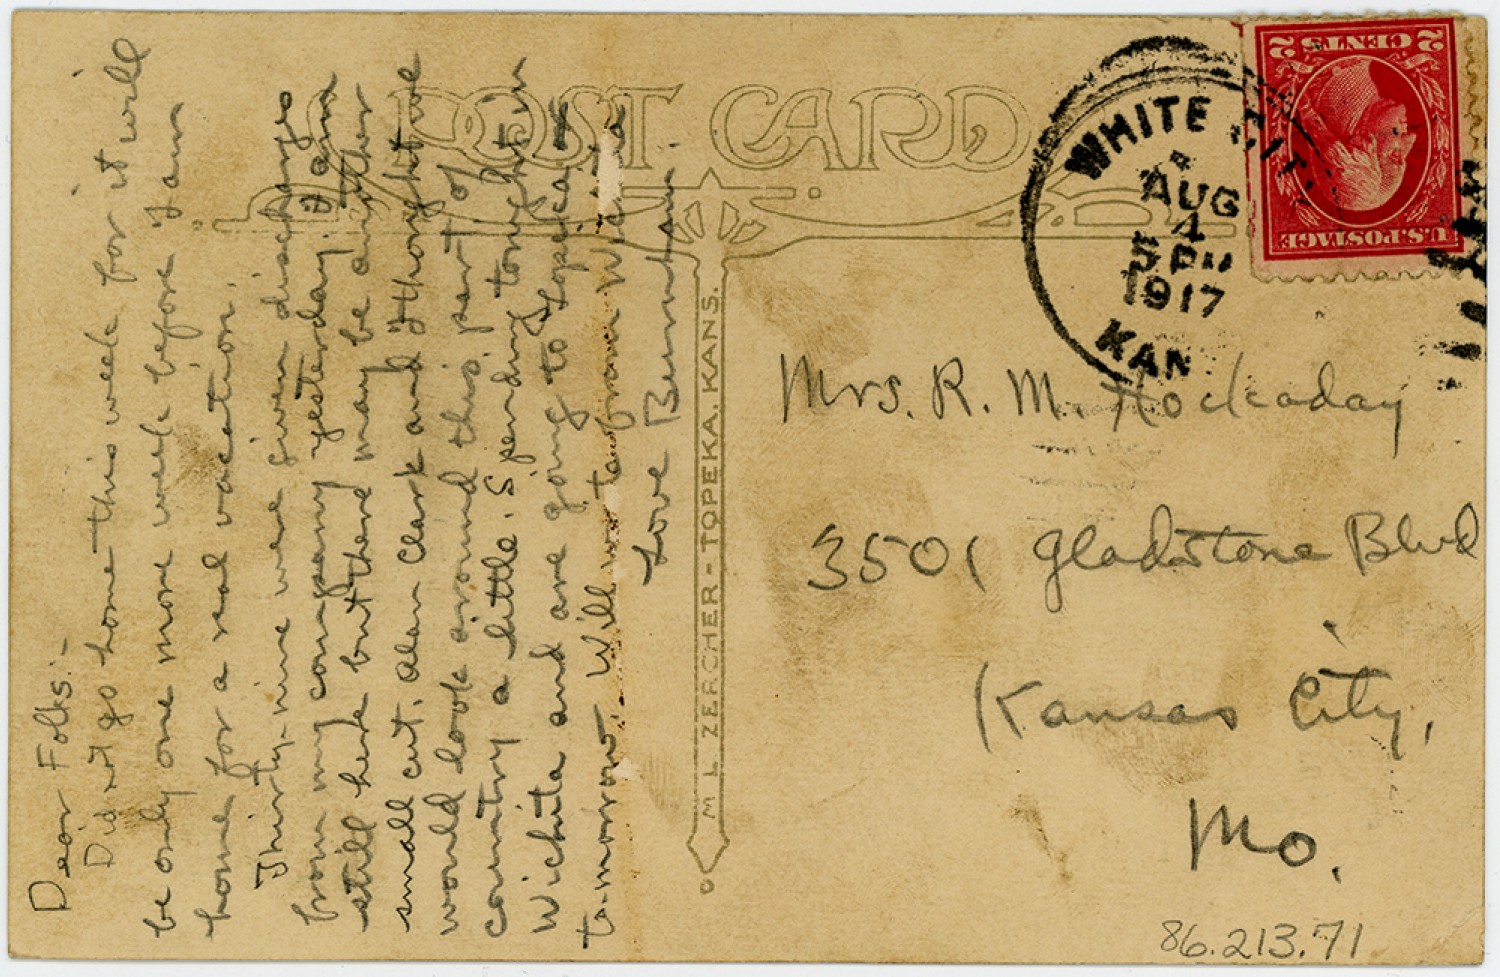 POST CARD
WHITE CITY
AUG
4
5 PM
1917
KAN
2 CENTS 2
U.S. POSTAGE
Dear Folks:-
Did not go home this week for it will
be only one more week before I am
home for a real vacation.
Thirty-nine were given discharges
from my company yesterday. I am
still here but there may be another
small cut. Alan Clark and I thought we
would look around this part of
country a little. Spending tonight in
Wichita and are going to Topeka
tomorrow. Will write from Wichita
Love Burnham.
M L ZERCHER-TOPEKA. KANS.
Mrs. R. M. Hockaday
3501 Gladstone Blvd
Kansas City,
Mo.
86.213.71